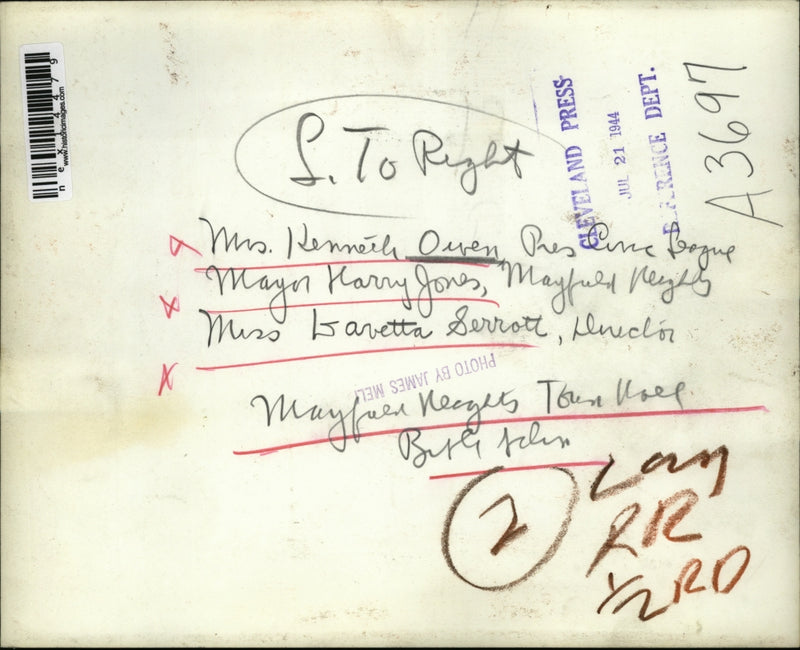 L. To Right
Mrs. Kenneth Owen, Pres Civic League
Mayor Harry Jones, Mayfield Heights
Miss Lavetta Serrott, Director
Mayfield Heights Town Hall
CLEVELAND PRESS
JUL 21 1944
REFERENCE DEPT.
A3697
PHOTO BY JAMES MELI
2
RR
1/2 RD
www.historicimages.com